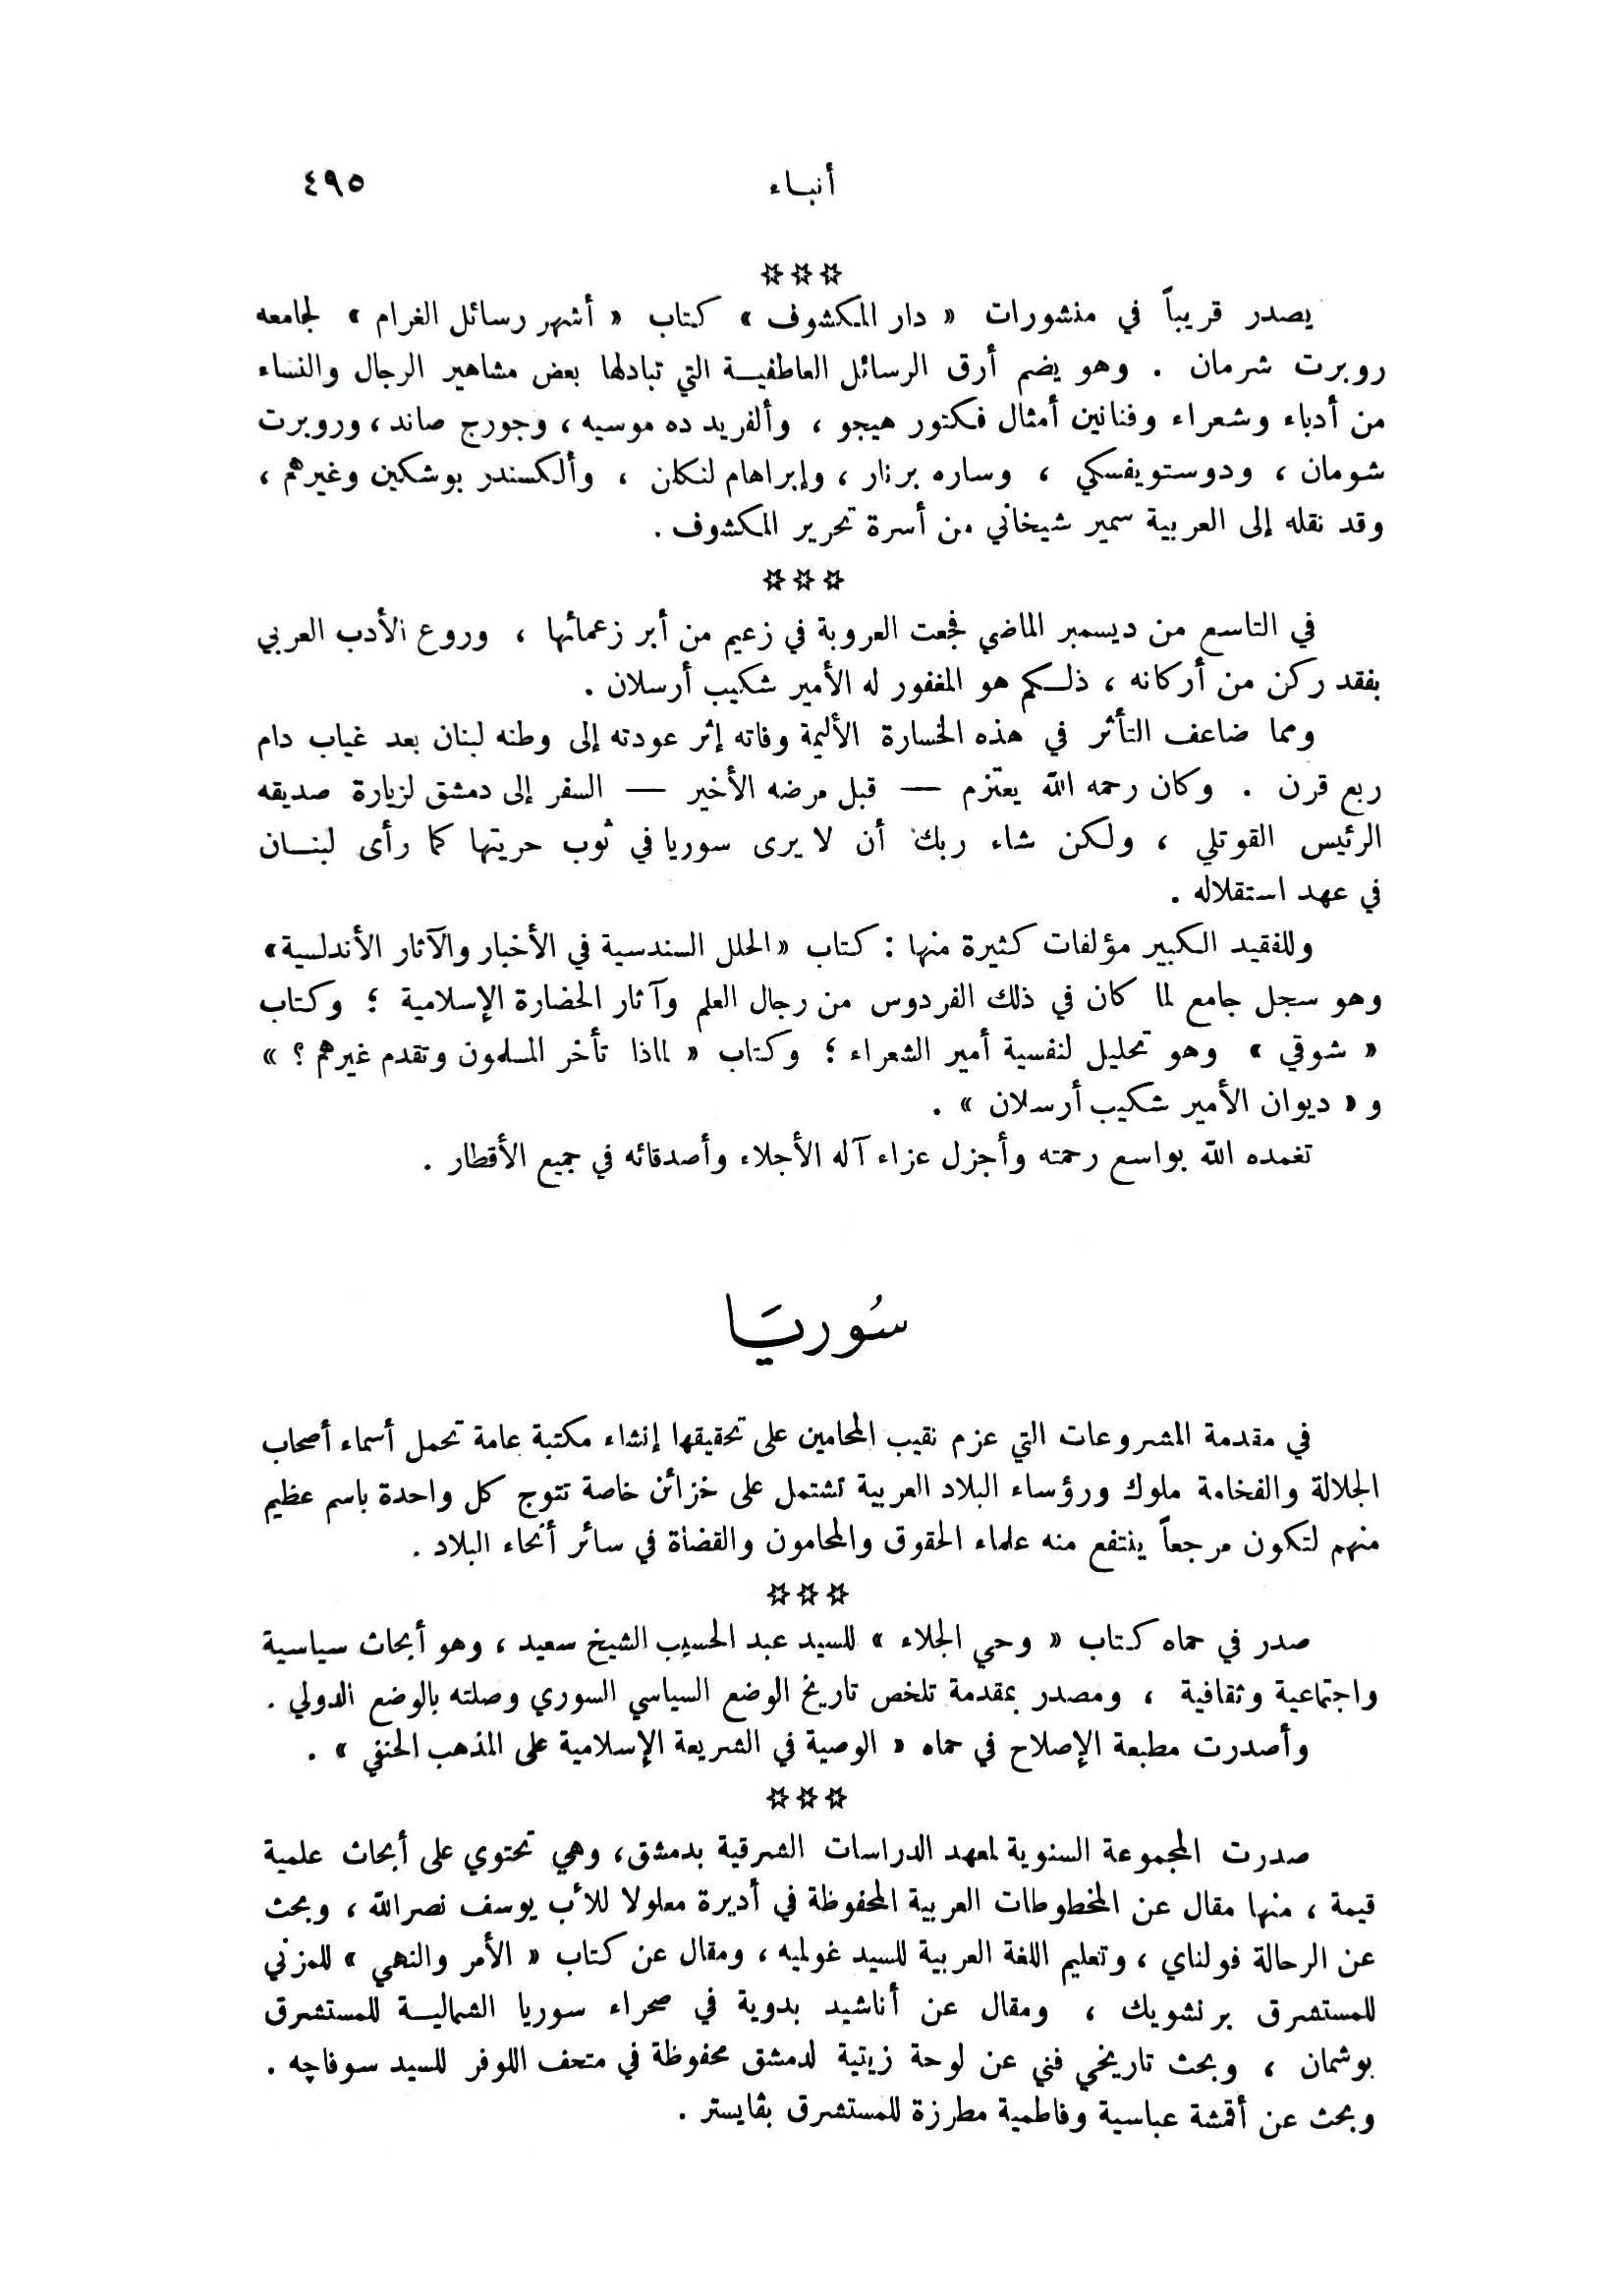 أنباء ٤٩٥
☆☆☆
يصدر قريباً في منشورات « دار المكشوف » كتاب « أشهر رسائل الغرام » لجامعه
روبرت شرمان . وهو يضم أرق الرسائل العاطفية التي تبادلها بعض مشاهير الرجال والنساء
من أدباء وشعراء وفنانين أمثال فكتور هيجو ، وألفريد ده موسيه ، وجورج صاند ، وروبرت
شومان ، ودوستويفسكي ، وساره برنار ، وإبراهام لنكلن ، وألكسندر بوشكين وغيرهم ،
وقد نقله إلى العربية سمير شيخاني من أسرة تحرير المكشوف .
☆☆☆
في التاسع من ديسمبر الماضي فجعت العروبة في زعيم من أبر زعمائها ، وروع الأدب العربي
بفقد ركن من أركانه ، ذلكم هو المغفور له الأمير شكيب أرسلان .
ومما ضاعف التأثر في هذه الخسارة الأليمة وفاته إثر عودته إلى وطنه لبنان بعد غياب دام
ربع قرن . وكان رحمه الله يعتزم — قبل مرضه الأخير — السفر إلى دمشق لزيارة صديقه
الرئيس القوتلي ، ولكن شاء ربك أن لا يرى سوريا في ثوب حريتها كما رأى لبنان
في عهد استقلاله .
وللفقيد الكبير مؤلفات كثيرة منها : كتاب « الحلل السندسية في الأخبار والآثار الأندلسية »
وهو سجل جامع لما كان في ذلك الفردوس من رجال العلم وآثار الحضارة الإسلامية ؛ وكتاب
« شوقي » وهو تحليل لنفسية أمير الشعراء ؛ وكتاب « لماذا تأخر المسلمون وتقدم غيرهم ؟ »
و « ديوان الأمير شكيب أرسلان » .
تغمده الله بواسع رحمته وأجزل عزاء آله الأجلاء وأصدقائه في جميع الأقطار .
سُوريَا
في مقدمة المشروعات التي عزم نقيب المحامين على تحقيقها إنشاء مكتبة عامة تحمل أسماء أصحاب
الجلالة والفخامة ملوك ورؤساء البلاد العربية تشتمل على خزائن خاصة تتوج كل واحدة باسم عظيم
منهم لتكون مرجعاً ينتفع منه علماء الحقوق والمحامون والقضاة في سائر أنحاء البلاد .
☆☆☆
صدر في حماه كتاب « وحي الجلاء » للسيد عبد الحسيب الشيخ سعيد ، وهو أبحاث سياسية
واجتماعية وثقافية ، ومصدر بمقدمة تلخص تاريخ الوضع السياسي السوري وصلته بالوضع الدولي .
وأصدرت مطبعة الإصلاح في حماه « الوصية في الشريعة الإسلامية على المذهب الحنفي » .
☆☆☆
صدرت المجموعة السنوية لمعهد الدراسات الشرقية بدمشق ، وهي تحتوي على أبحاث علمية
قيمة ، منها مقال عن المخطوطات العربية المحفوظة في أديرة معلولا للأب يوسف نصرالله ، وبحث
عن الرحالة فولناي ، وتعليم اللغة العربية للسيد غولميه ، ومقال عن كتاب « الأمر والنهي » للمزني
للمستشرق برنشويك ، ومقال عن أناشيد بدوية في صحراء سوريا الشمالية للمستشرق
بوشمان ، وبحث تاريخي فني عن لوحة زيتية لدمشق محفوظة في متحف اللوفر للسيد سوفاجه .
وبحث عن أقمشة عباسية وفاطمية مطرزة للمستشرق بفايستر .